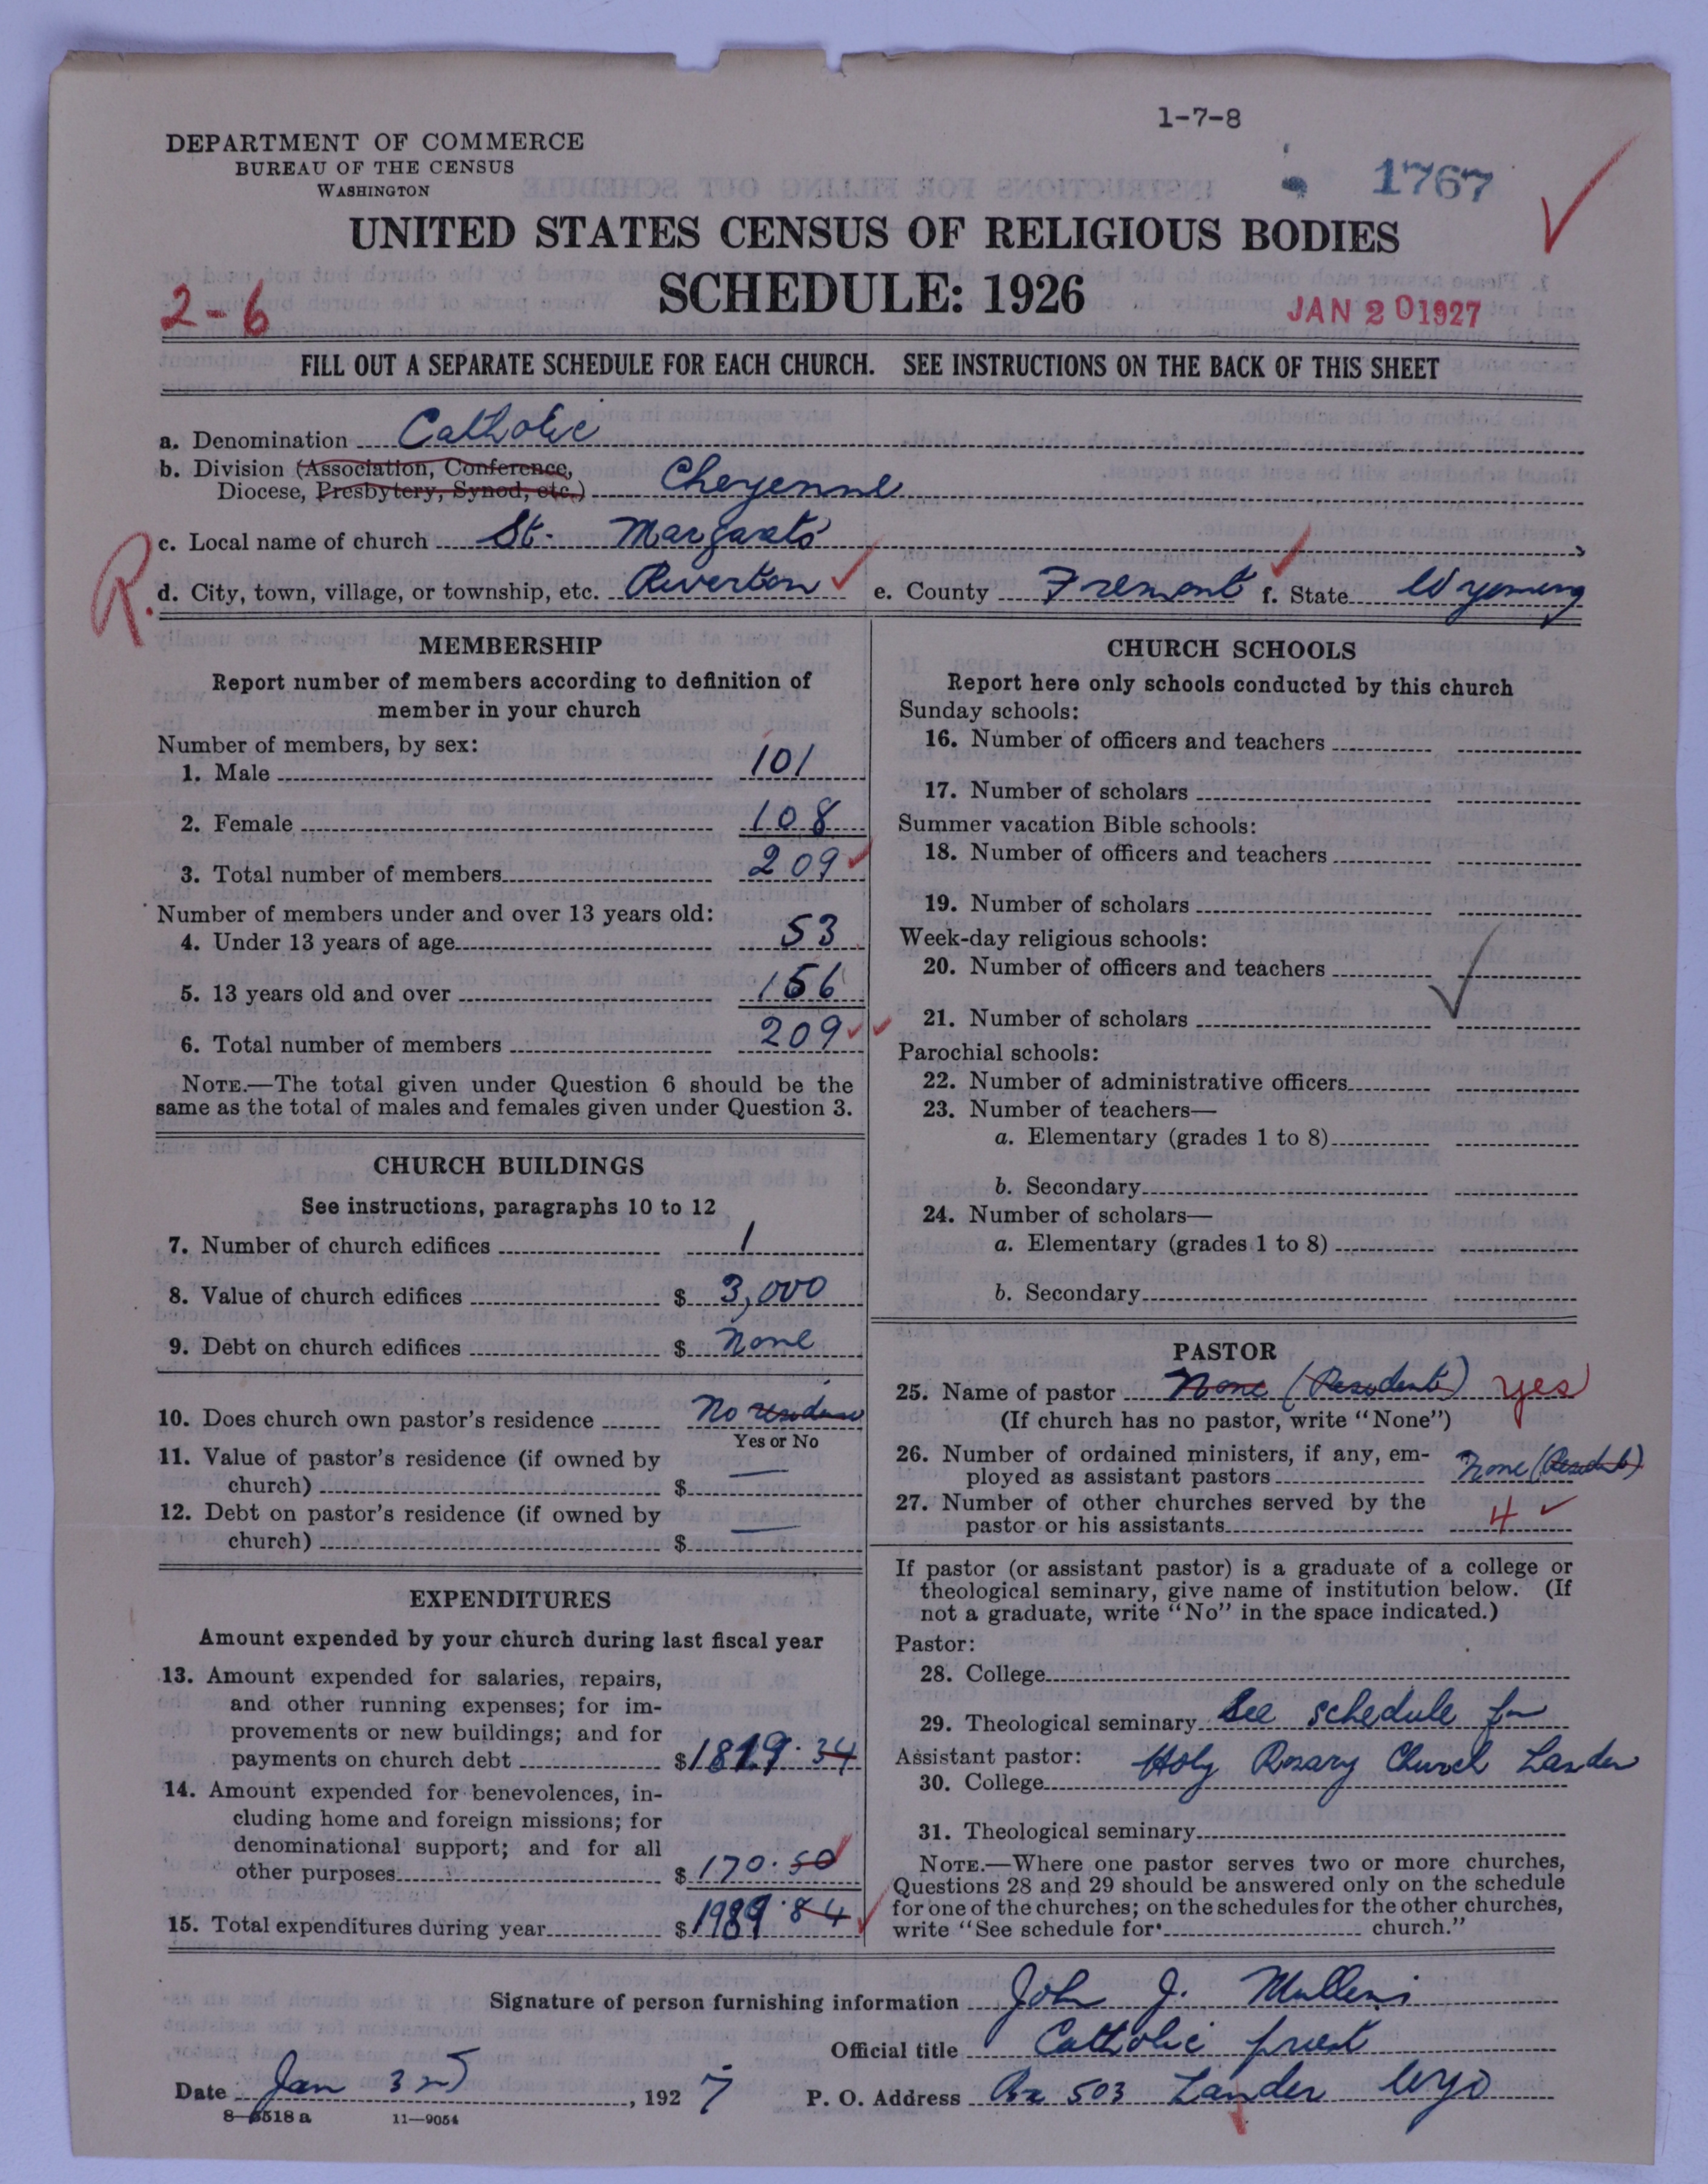 1-7-8
DEPARTMENT OF COMMERCE
BUREAU OF THE CENSUS
WASHINGTON
1767
UNITED STATES CENSUS OF RELIGIOUS BODIES
SCHEDULE: 1926
2-6
JAN 20 1927
FILL OUT A SEPARATE SCHEDULE FOR EACH CHURCH. SEE INSTRUCTIONS ON THE BACK OF THIS SHEET
a. Denomination Catholic
b. Division (Association, Conference,
Diocese, Presbytery, Synod, etc.) Cheyenne
c. Local name of church St. Margarets
R. d. City, town, village, or township, etc. Riverton e. County Fremont f. State Wyoming
MEMBERSHIP
Report number of members according to definition of
member in your church
Number of members, by sex:
1. Male 101
2. Female 108
3. Total number of members 209
Number of members under and over 13 years old:
4. Under 13 years of age 53
5. 13 years old and over 156
6. Total number of members 209
NOTE.—The total given under Question 6 should be the
same as the total of males and females given under Question 3.
CHURCH BUILDINGS
See instructions, paragraphs 10 to 12
7. Number of church edifices 1
8. Value of church edifices $ 3,000
9. Debt on church edifices $ None
10. Does church own pastor's residence No residence
Yes or No
11. Value of pastor's residence (if owned by
church) $ —
12. Debt on pastor's residence (if owned by
church) $ —
EXPENDITURES
Amount expended by your church during last fiscal year
13. Amount expended for salaries, repairs,
and other running expenses; for im-
provements or new buildings; and for
payments on church debt $ 1819.34
14. Amount expended for benevolences, in-
cluding home and foreign missions; for
denominational support; and for all
other purposes $ 170.50
15. Total expenditures during year $ 1989.84
CHURCH SCHOOLS
Report here only schools conducted by this church
Sunday schools:
16. Number of officers and teachers
17. Number of scholars
Summer vacation Bible schools:
18. Number of officers and teachers
19. Number of scholars
Week-day religious schools:
20. Number of officers and teachers
21. Number of scholars
Parochial schools:
22. Number of administrative officers
23. Number of teachers—
a. Elementary (grades 1 to 8)
b. Secondary
24. Number of scholars—
a. Elementary (grades 1 to 8)
b. Secondary
PASTOR
25. Name of pastor None (Resident) yes
(If church has no pastor, write "None")
26. Number of ordained ministers, if any, em-
ployed as assistant pastors None (Resident)
27. Number of other churches served by the
pastor or his assistants 4
If pastor (or assistant pastor) is a graduate of a college or
theological seminary, give name of institution below. (If
not a graduate, write "No" in the space indicated.)
Pastor:
28. College
29. Theological seminary See schedule for
Assistant pastor: Holy Rosary Church Lander
30. College
31. Theological seminary
NOTE.—Where one pastor serves two or more churches,
Questions 28 and 29 should be answered only on the schedule
for one of the churches; on the schedules for the other churches,
write "See schedule for church."
Signature of person furnishing information John J. Mullens
Official title Catholic priest
Date Jan 3rd, 1927 P. O. Address Box 503 Lander Wyo
8-5518 a 11-9054